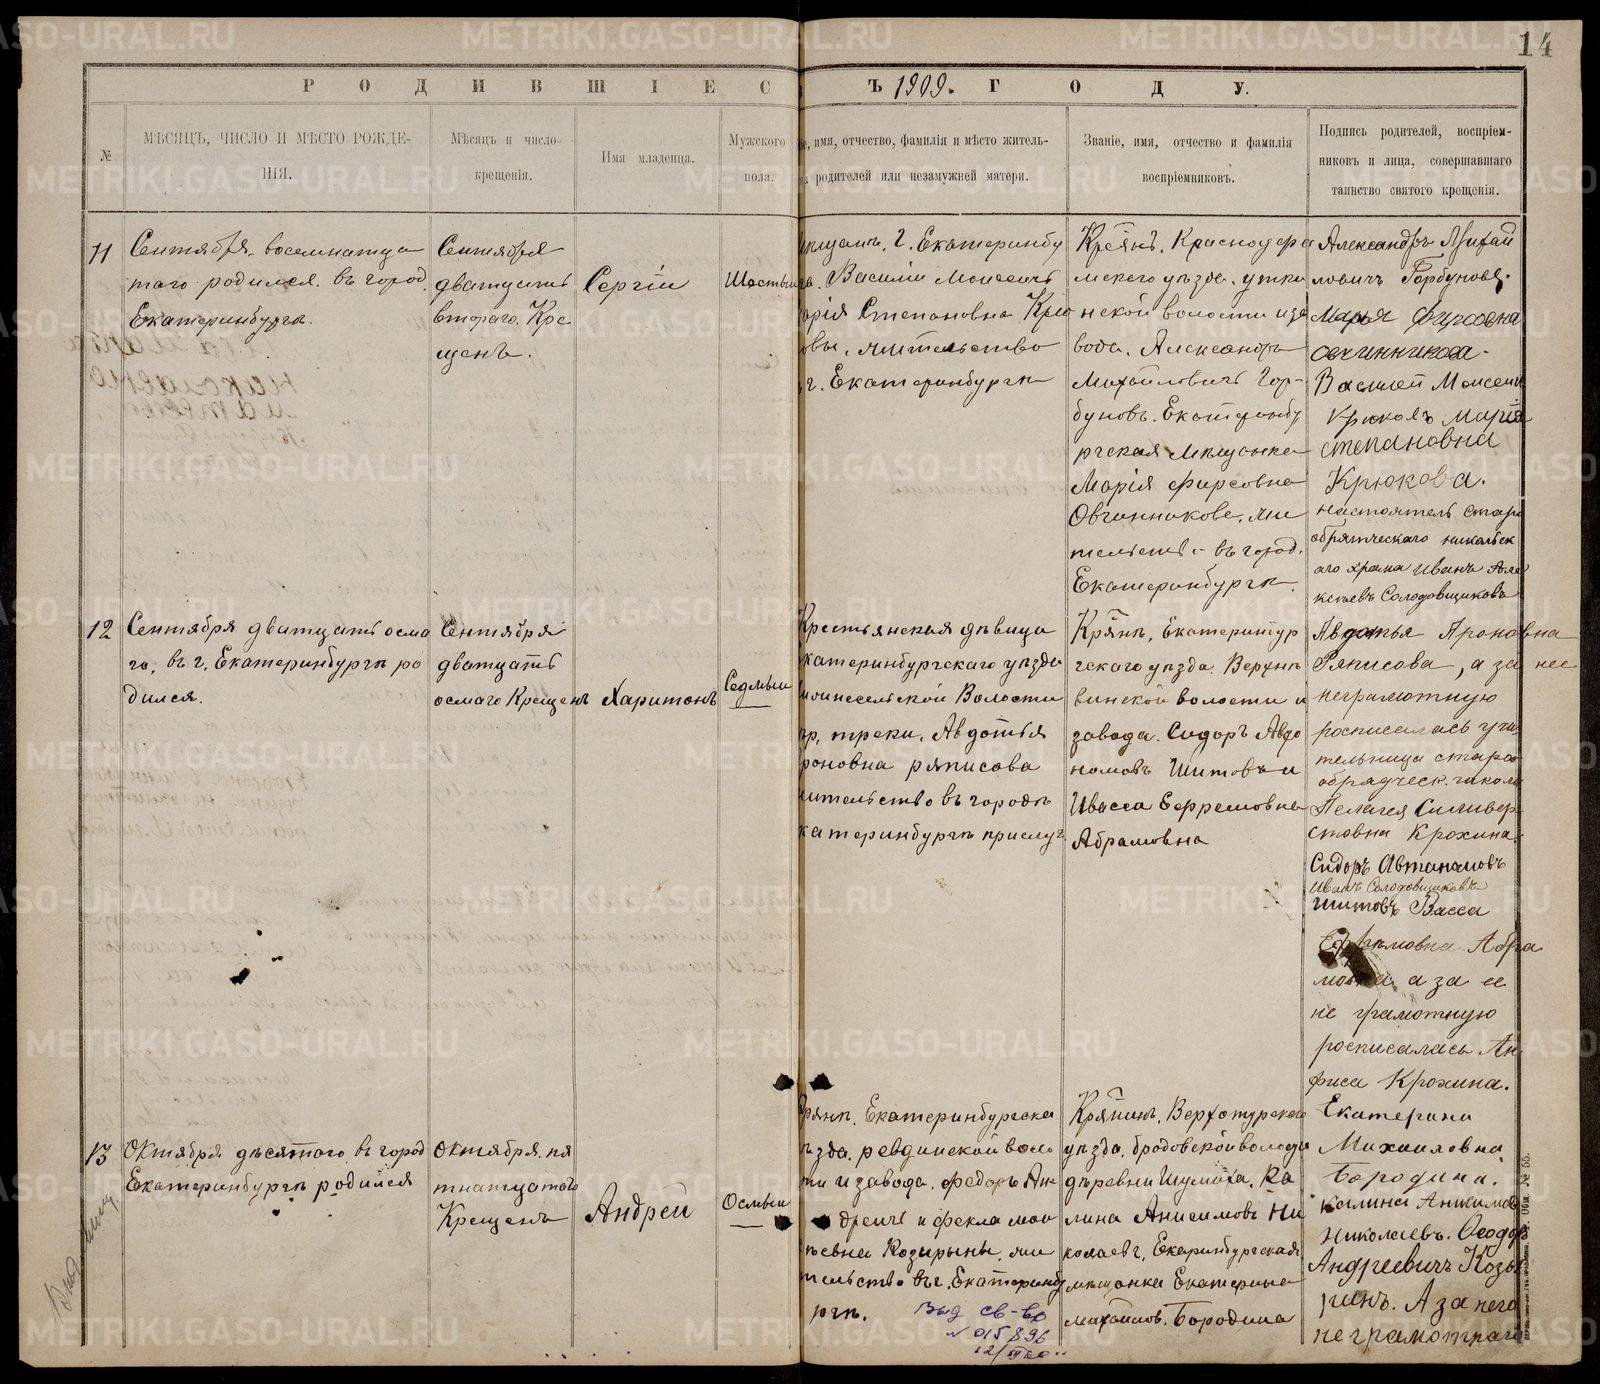 14
РОДИВШІЕСЪ 1909. ГОДУ.
№
МѢСЯЦЪ, ЧИСЛО И МѢСТО РОЖДЕ-
НІЯ.
Мѣсяцъ и число
крещенія.
Имя младенца.
Мужского
пола.
имя, отчество, фамилія и мѣсто житель-
родителей или незамужней матери.
Званіе, имя, отчество и фамилія
воспріемниковъ.
Подпись родителей, воспріем-
никовъ и лица, совершавшаго
таинство святого крещенія.
11
Сентября восемнатца
таго родился въ город.
Екатеринбурга.
Сентября
дватцать
втораго Кре
щенъ.
Сергій
Шестый
г. Екатеринбу
Василій Моисеичъ
Степановна Крю
жительство
г. Екатеринбургѣ
Крѣянъ. Красноуфи
мскаго уѣзда, утки
нской волости и за
вода. Александръ
Михайловичъ Гор-
буновъ. Екатеринбу
ргская мѣщанка
Марія Фирсовна
Овчинникова. жи
въ город.
Екатеринбургѣ.
Александръ Михай
ловичъ Горбуновъ.
Марья Фирсовна
овчинникова.
Василей Моисеич
Крюковъ Марія
степановна
Крюкова.
настоятель старо
обрятческаго никольск
аго храма Иванъ Але
ксѣевъ Солодовщиковъ
12
Сентября дватцать осма
го. въ г. Екатеринбургѣ ро
дился.
Сентября
дватцать
осмаго Крещенъ
Харитонъ
Седмый
Крестьянская дѣвица
катеринбургскаго уѣзда
Волости
Авдотья
роновна ряписова
жительство въ городѣ
катеринбургѣ прислуг.
Крянъ, Екатеринбур
гскаго уѣзда. Верхнѣ
винской волости и
завода. Сидоръ Авдо
номовъ Шитовъ и
Ивасса Ефремовна
Абрамовна
Авдотья Ароновна
Ряписова, а за нее
неграмотную
росписалась учи
тельница старо
обрядческ. школы
Пелагея Силивер
стовна Крохина.
Сидоръ Автанамовъ
Иванъ Солодовщиковъ
Шитовъ Васса
Абра
а за ее
не грамотную
росписалась Ан
фиса Крохина.
13
Октября дѣсятаго въ город
Екатеринбургѣ родился
Октября пя
тнатцатого
Крещенъ
Андрей
Осмый
Екатеринбургска
ѣзда. ревдинской воло
ти и завода. Федоръ Ан
дреичъ и фекла мои
ѣевна Козырины. жи
тельство въ г. Екатеринбу
ргѣ.
Выд св-во
№ 015896
Верхотурскаго
уѣзда. бродовской волости
дѣревни Шумиха. Ка
лина Анисимовъ Ни
колаевъ, Екаринбургская
мѣщанка Екатерина
михайлов. Бородина
Екатерина
Михаиловна
Бородина.
калина Анисимов
николаевъ. Феодор
Андреевичъ Козы
ринъ. А за него
неграмотнаго